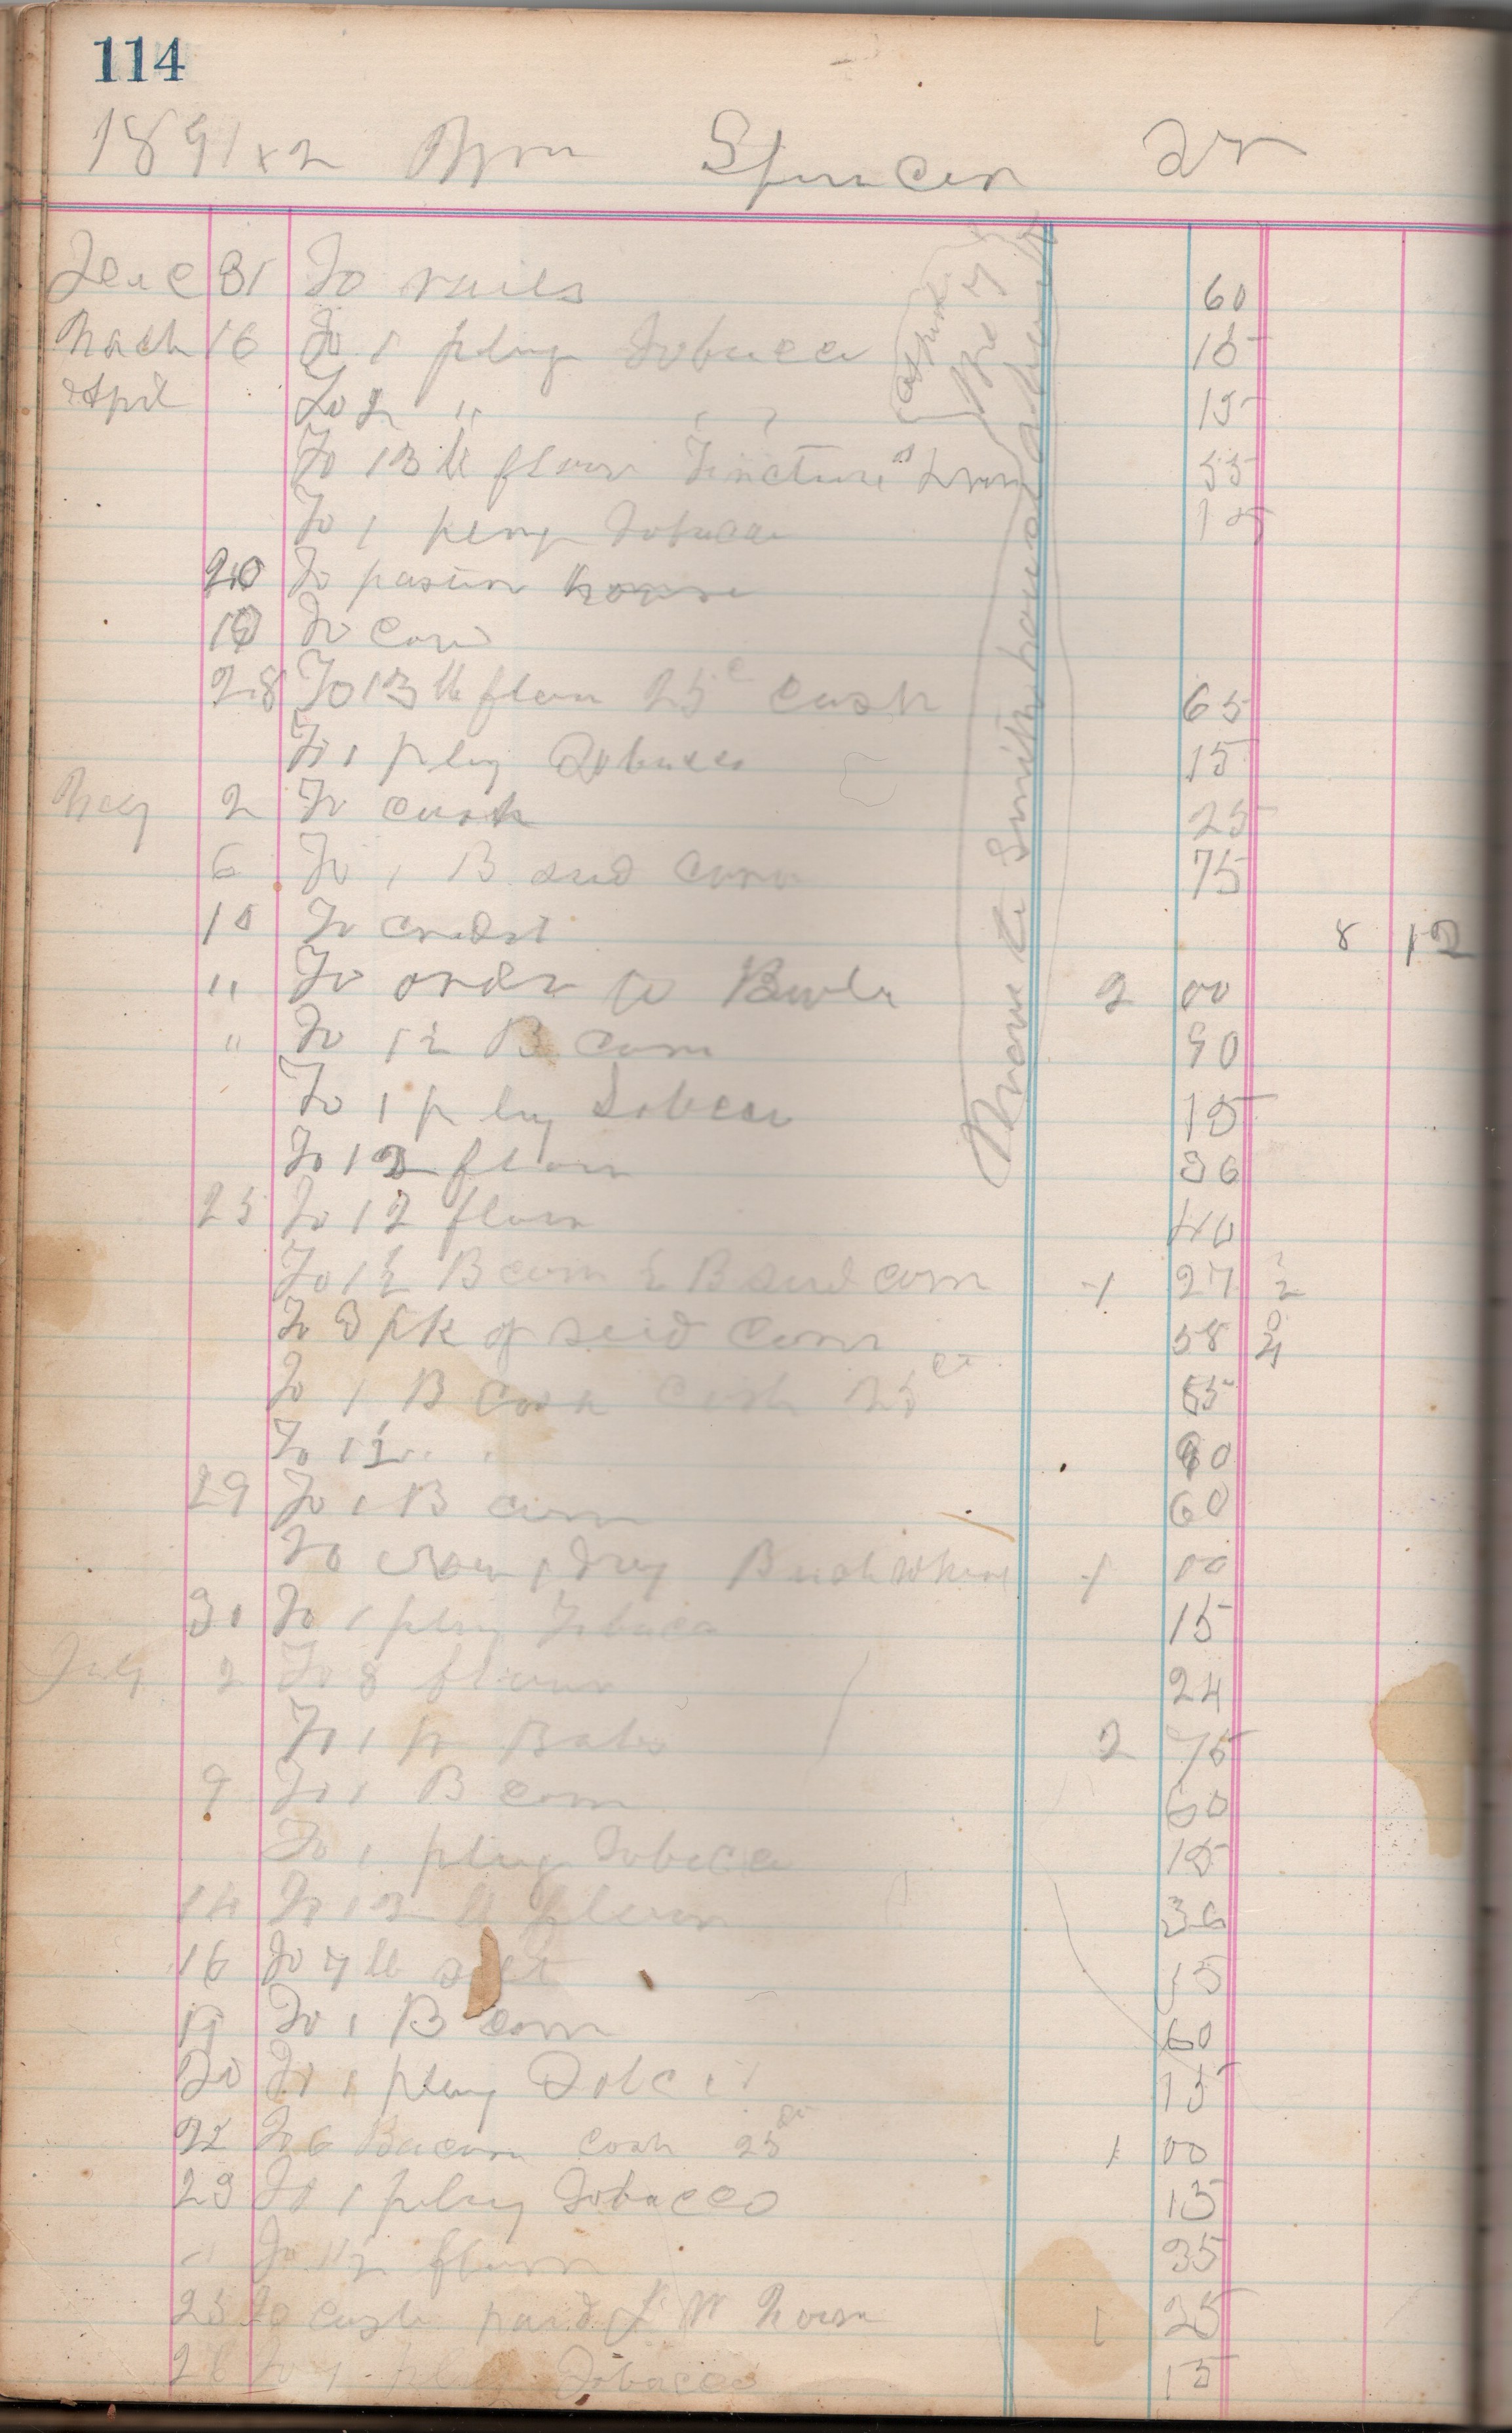 114
1891 x 2 Spencer Dr
Dec 31 To nails 60
March 16 To 1 plug Tobacco 15
April To 2 " " 15
To 13 lb flour Tincture Iron 55
To 1 plug Tobacco 15
20 To pasture horse
10 To corn
28 To 13 lb flour 25c cash 65
To 1 plug Tobacco 15
May 2 To cash 25
6 To 1 B seed corn 75
10 To credit 8 12
" To order to 2 00
" To 1½ B corn 90
To 1 plug Tobacco 15
To 12 flour 36
25 To 12 flour 40
To 1½ B corn ½ B seed corn 1 27 ½
To 3 pk of seed corn 58
To 1 B corn cash 25 85
To 1½ " " 90
29 To 1 B corn 60
To 1 day 1 00
31 To 1 plug Tobacco 15
July 2 To 8 flour 24
To 1 pr 2 75
9 To 1 B corn 60
To 1 plug Tobacco 15
14 To 12 lb flour 36
16 To 7 lb salt 15
19 To 1 B corn 60
20 To 1 plug 15
22 To 6 Bacon cash 25 1 00
23 To 1 plug Tobacco 15
" To flour 35
25 To cash paid 1 25
To 1 plug Tobacco 15
Smith house